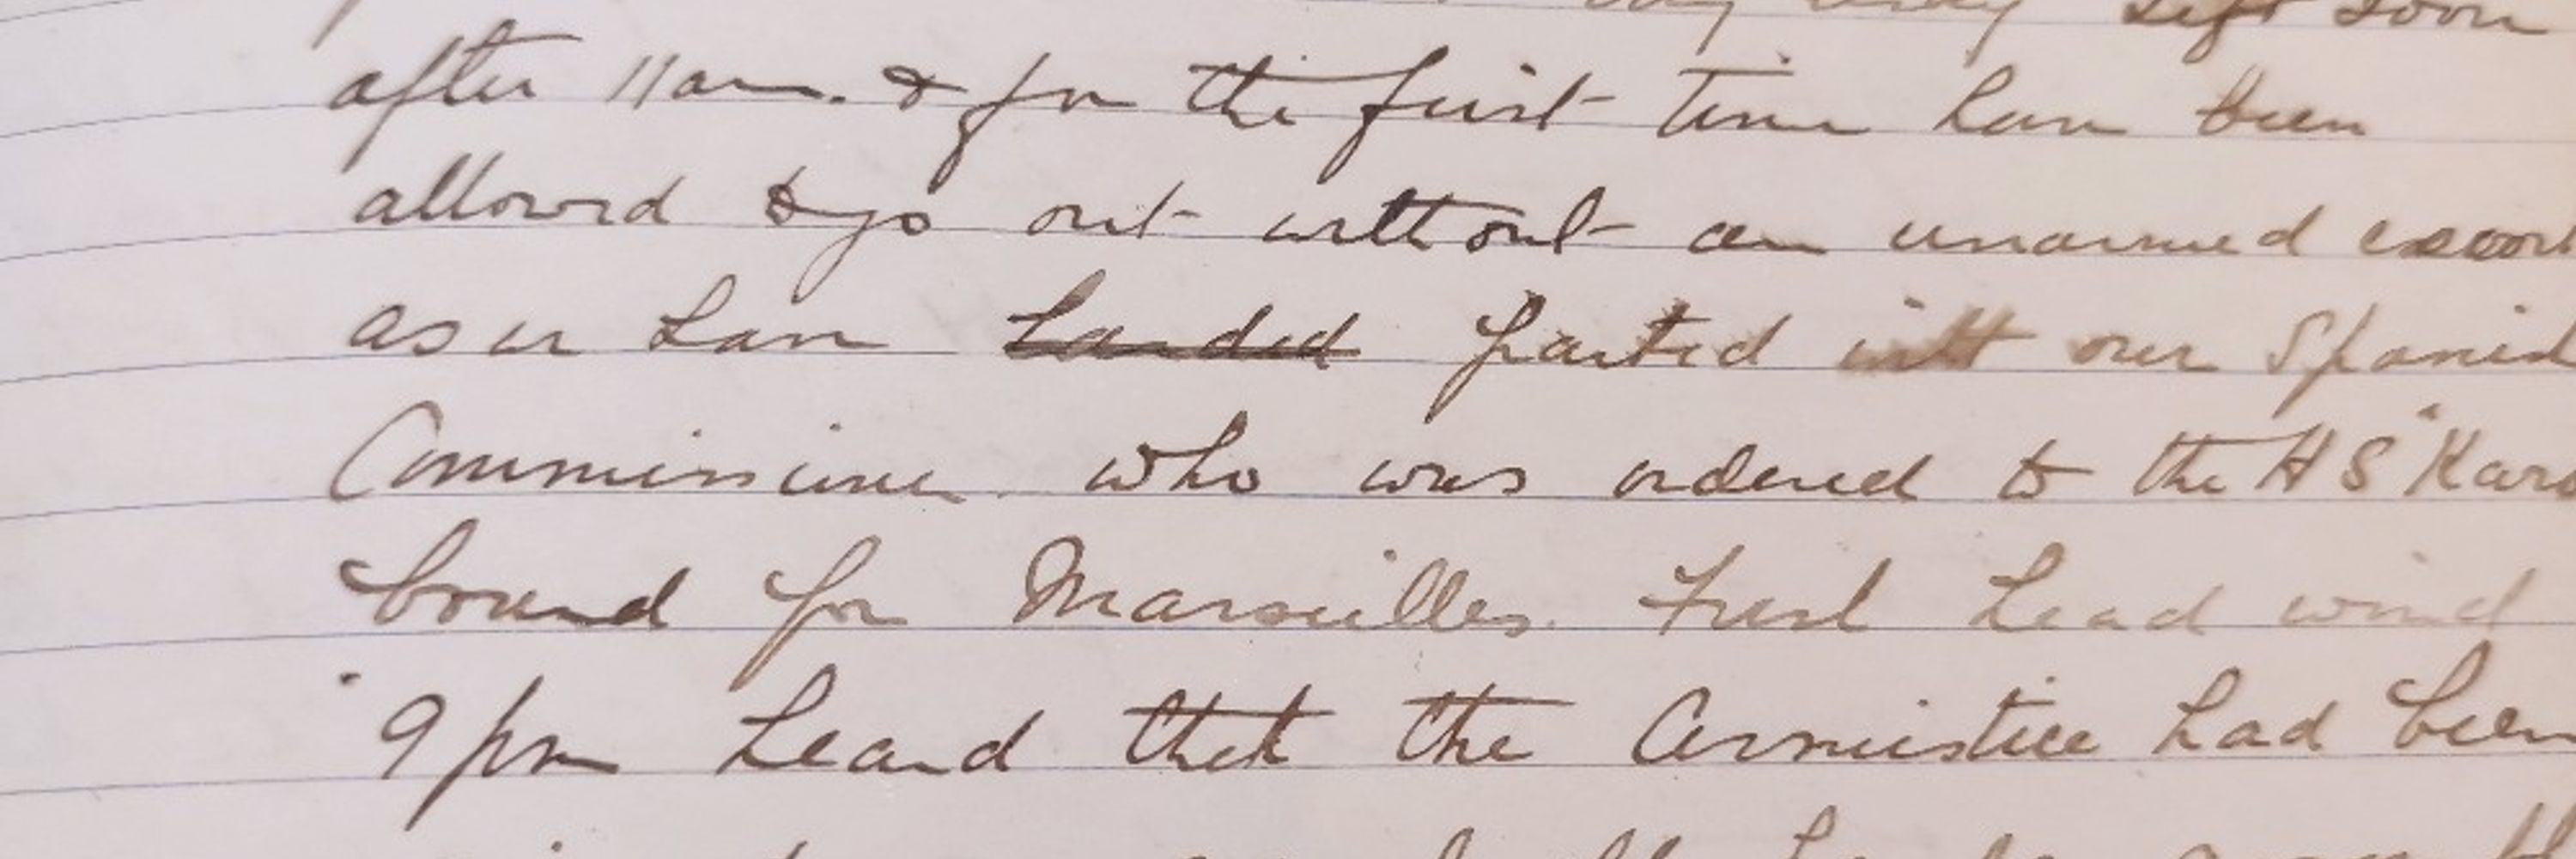 left soon
after 11am. & for the first time have been
allowed to go out without an unarmed escort
as we have landed parted with our Spanish
Commissioner who was ordered to the HS "Karo
bound for Marseilles. Fresh head wind
9 pm heard that the Armistice had been